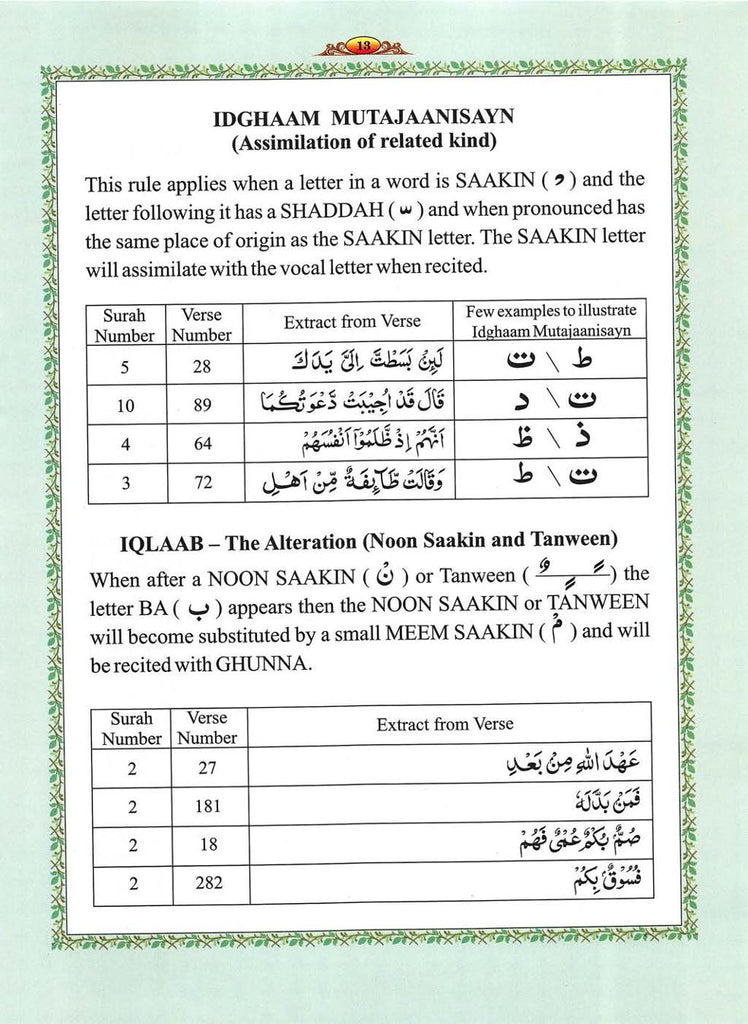 13
IDGHAAM MUTAJAANISAYN
(Assimilation of related kind)
This rule applies when a letter in a word is SAAKIN ( ْ ) and the
letter following it has a SHADDAH ( ّ ) and when pronounced has
the same place of origin as the SAAKIN letter. The SAAKIN letter
will assimilate with the vocal letter when recited.
Surah Number | Verse Number | Extract from Verse | Few examples to illustrate Idghaam Mutajaanisayn
5 | 28 | لَئِنْ بَسَطْتَّ اِلَیَّ یَدَكَ | ط \ ت
10 | 89 | قَالَ قَدْ اُجِیْبَتْ دَّعْوَتُكُمَا | ت \ د
4 | 64 | اَنَّهُمْ اِذْ ظَّلَمُوْۤا اَنْفُسَهُمْ | ذ \ ظ
3 | 72 | وَقَالَتْ طَّآئِفَةٌ مِّنْ اَهْلِ | ت \ ط
IQLAAB – The Alteration (Noon Saakin and Tanween)
When after a NOON SAAKIN ( نْ ) or Tanween ( ٌ ٍ ً ) the
letter BA ( ب ) appears then the NOON SAAKIN or TANWEEN
will become substituted by a small MEEM SAAKIN ( مْ ) and will
be recited with GHUNNA.
Surah Number | Verse Number | Extract from Verse
2 | 27 | عَهْدَ اللّٰهِ مِنْۢ بَعْدِ
2 | 181 | فَمَنْۢ بَدَّلَهٗ
2 | 18 | صُمٌّۢ بُكْمٌ عُمْیٌ فَهُمْ
2 | 282 | فُسُوْقٌۢ بِكُمْ